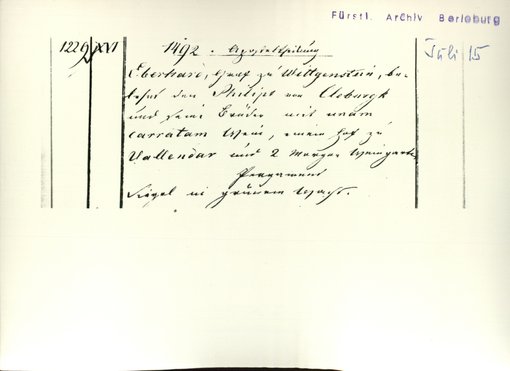 Fürstl. Archiv Berleburg
1229 XVI 1492. Apostelteilung Juli 15
Eberhard, Graf zu Wittgenstein, be-
lehnt den Philips von Cloburgk
und seine Brüder mit unam
carratam Wein, einem Hof zu
Vallendar und 2 Morgen Weingarten
Pergament
Siegel in grünem Wachs.